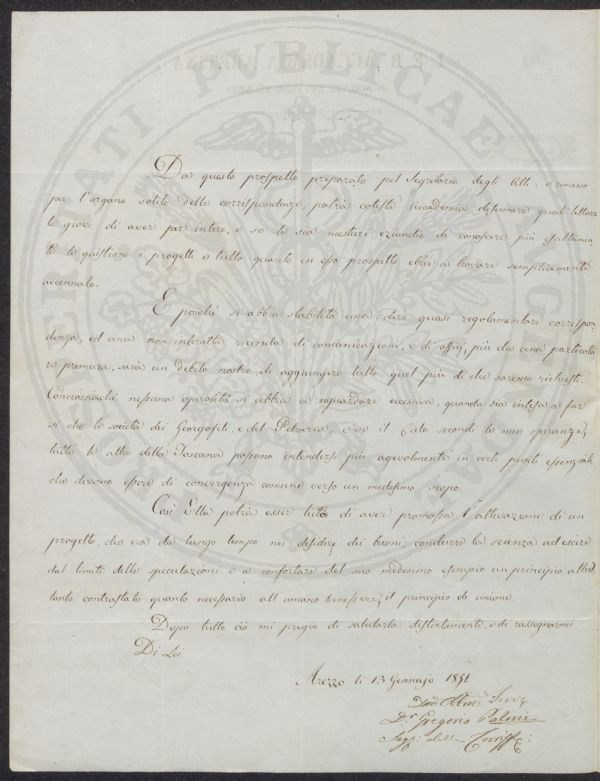 PROSPERITATI PVBLICAE AVGENDAE
Da questo prospetto preparato pel Segretario degli Atti, e rimesso
per l'organo solito delle corrispondenze, potrà cotesta Accademia desumere quali letture
le giovi di aver per intero, e se le sia mestieri eziandio di conoscere più esattamen
te le quistioni i progetti e tutto quanto in esso prospetto ebbe a trovare semplicemente
accennato.
E poiché si abbia stabilita una, dirò quasi regolamentare corrispon
denza, ed una non interrotta vicenda di comunicazioni, e di ossequi, più che una particola
re premura, sarà un debito nostro di aggiungere tutto quel più di che saremo richiesti.
Conciossiaché nessuna operosità si abbia a riguardare eccessiva, quando sia intesa a far
sì che le società dei Georgofili, e del Petrarca, e se il Cielo secondi le mie speranze,
tutte le altre della Toscana possano intendersi più agevolmente in certi punti essenziali,
che devono essere di convergenza comune verso un medesimo scopo.
Così Ella potrà esser lieta di aver promossa l'attuazione di un
progetto, che era da lungo tempo nei desiderj dei buoni; condurre la scienza ad escire
dai limiti delle speculazioni e a confortare del suo medesimo esempio un principio altret
tanto contrastato quanto necessario all'umano benessere, il principio di unione.
Dopo tutto ciò mi pregio di salutarla distintamente, e di rassegnarmi
Di Lei
Arezzo li 13 Gennajo 1851
Servo
Dr. Gregorio Palmi
Segr. delle Corrisp.